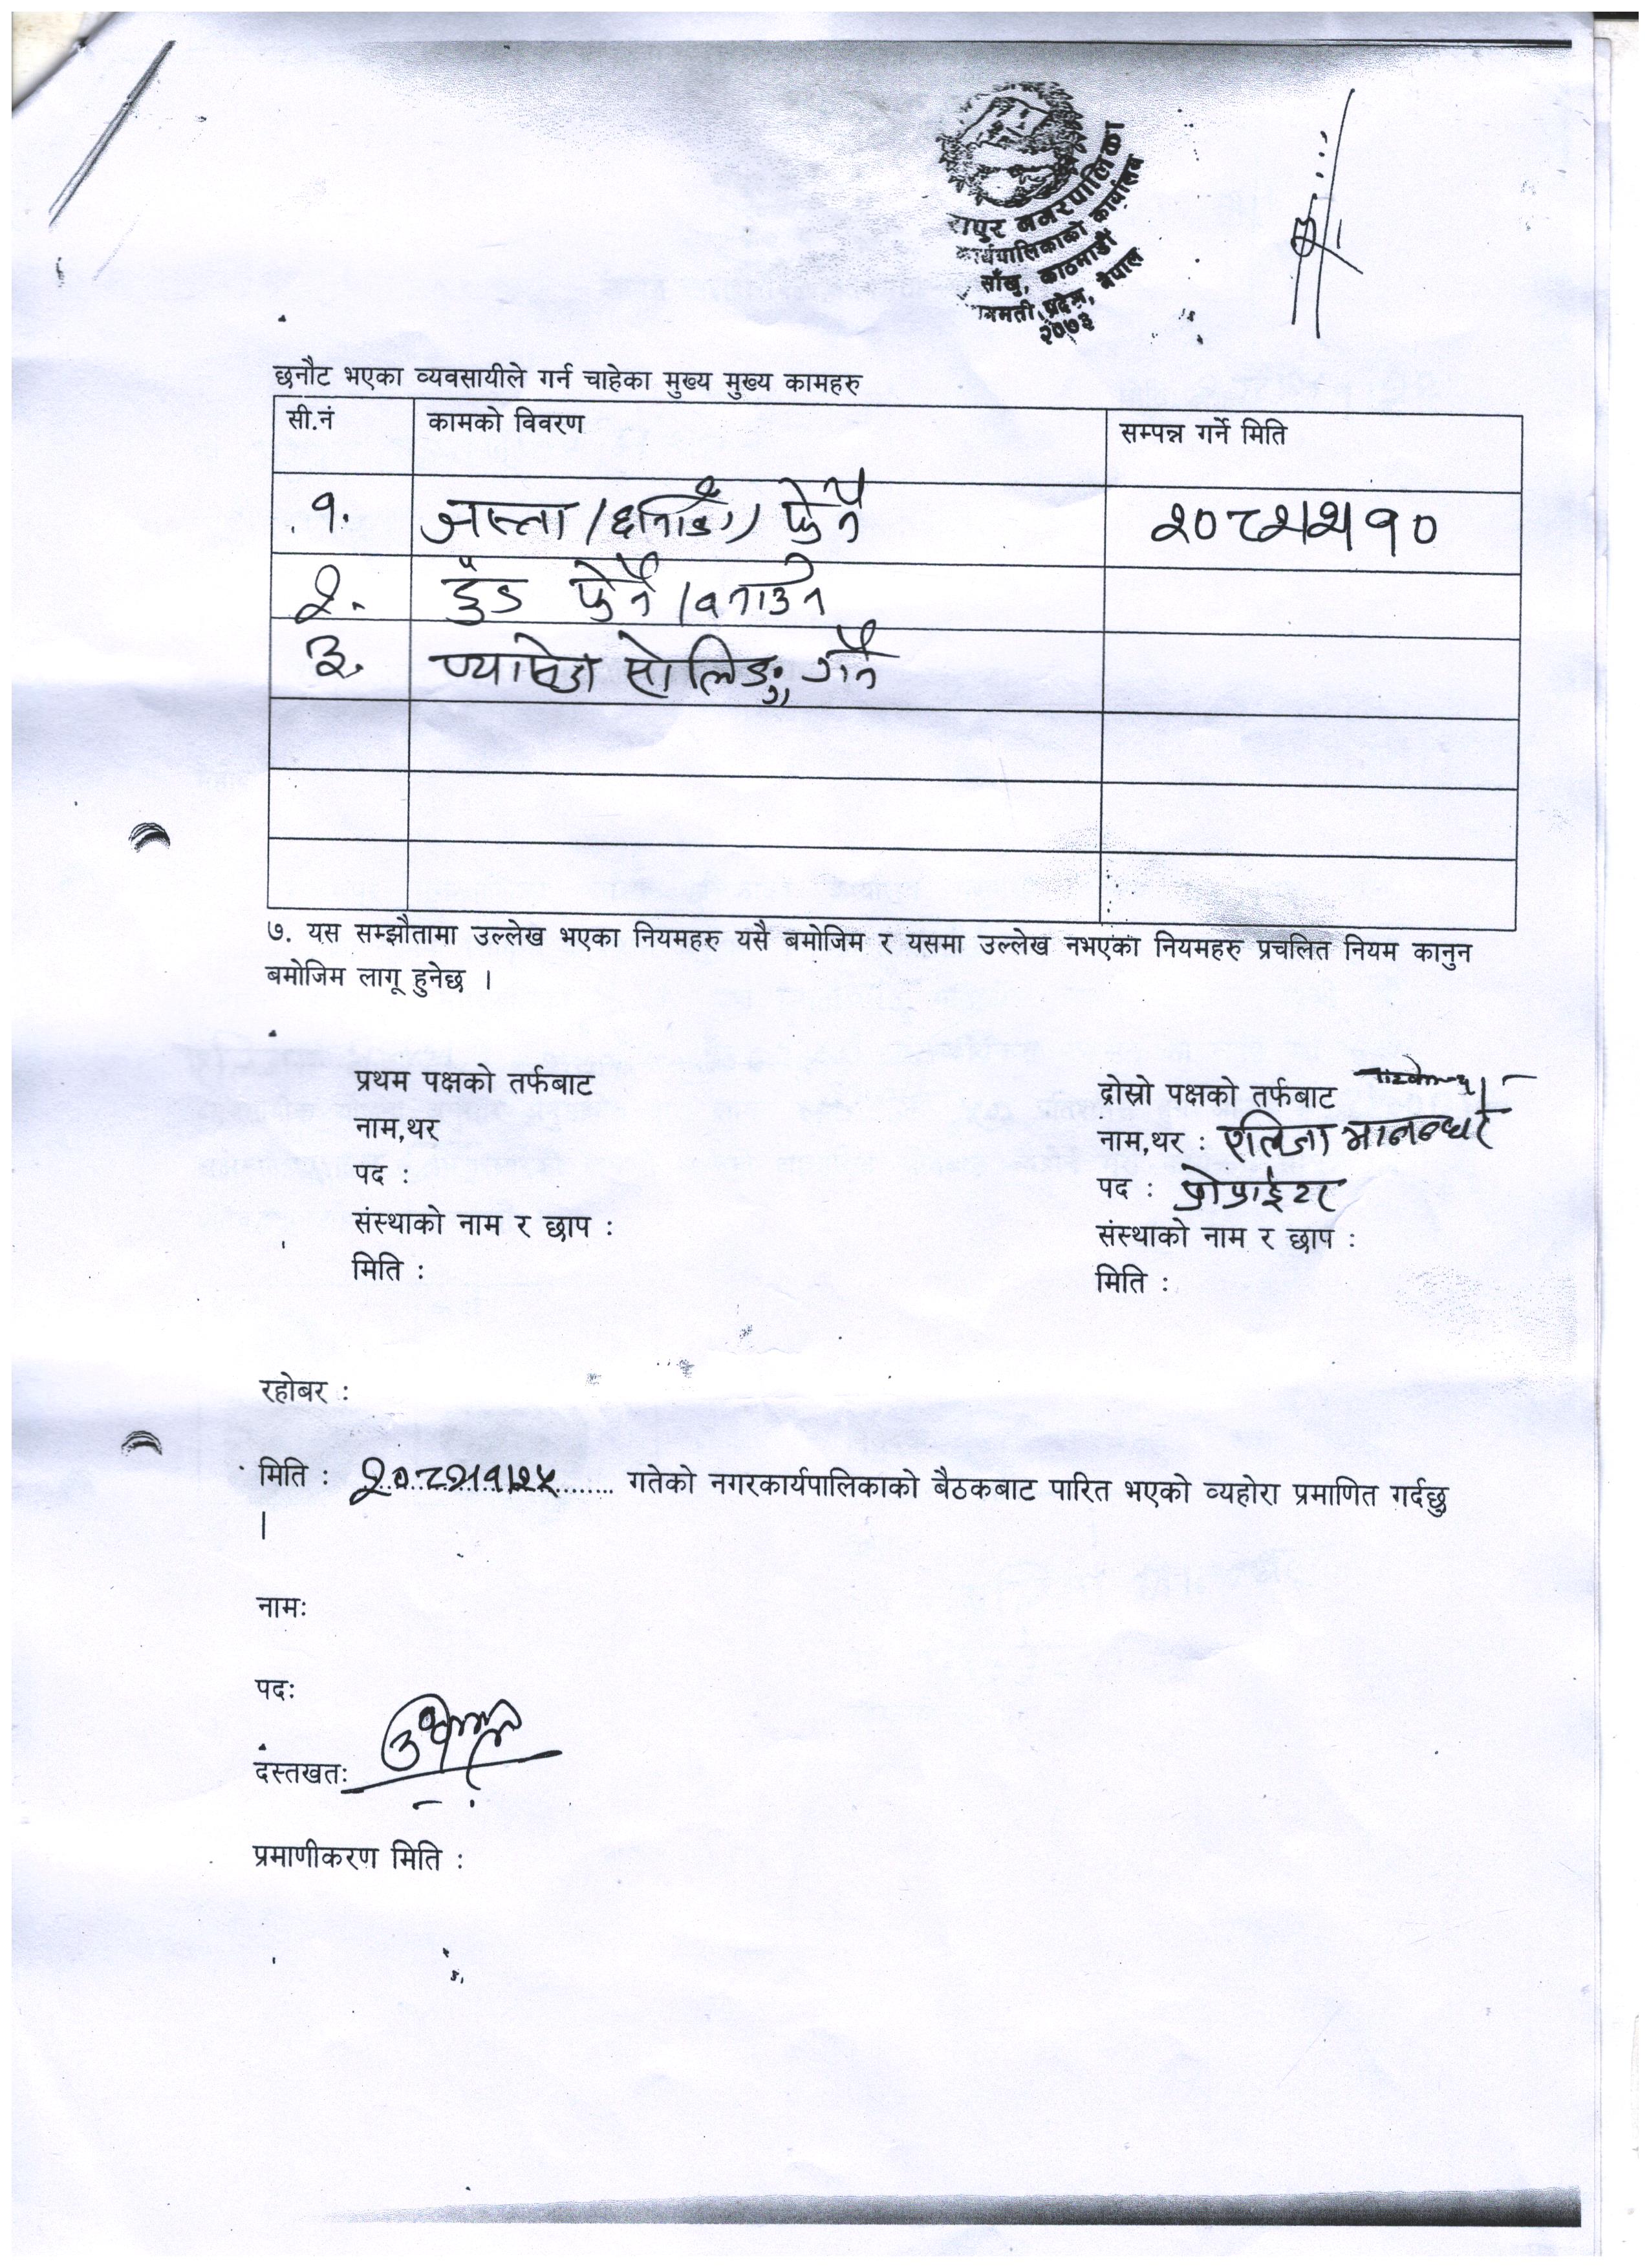 नगरपालिका
कार्यपालिकाको कार्यालय
साँखु, काठमाडौं
प्रदेश, नेपाल
२०७३
छनौट भएका व्यवसायीले गर्न चाहेका मुख्य मुख्य कामहरु
सी.नं कामको विवरण सम्पन्न गर्ने मिति
१. जस्ता /छानाको/ फेर्ने २०८२।२।१०
२. डुँड फेर्ने /बनाउने
३. प्यासेज सोलिङ्ग गर्ने
७. यस सम्झौतामा उल्लेख भएका नियमहरु यसै बमोजिम र यसमा उल्लेख नभएका नियमहरु प्रचलित नियम कानुन
बमोजिम लागू हुनेछ ।
प्रथम पक्षको तर्फबाट
नाम,थर
पद :
संस्थाको नाम र छाप :
मिति :
द्रोस्रो पक्षको तर्फबाट
नाम,थर : एलिजा मानन्धर
पद : प्रोप्राईटर
संस्थाको नाम र छाप :
मिति :
रहोबर :
मिति : २०८२।१।२५ गतेको नगरकार्यपालिकाको बैठकबाट पारित भएको व्यहोरा प्रमाणित गर्दछु
।
नामः
पदः
दस्तखतः
प्रमाणीकरण मिति :